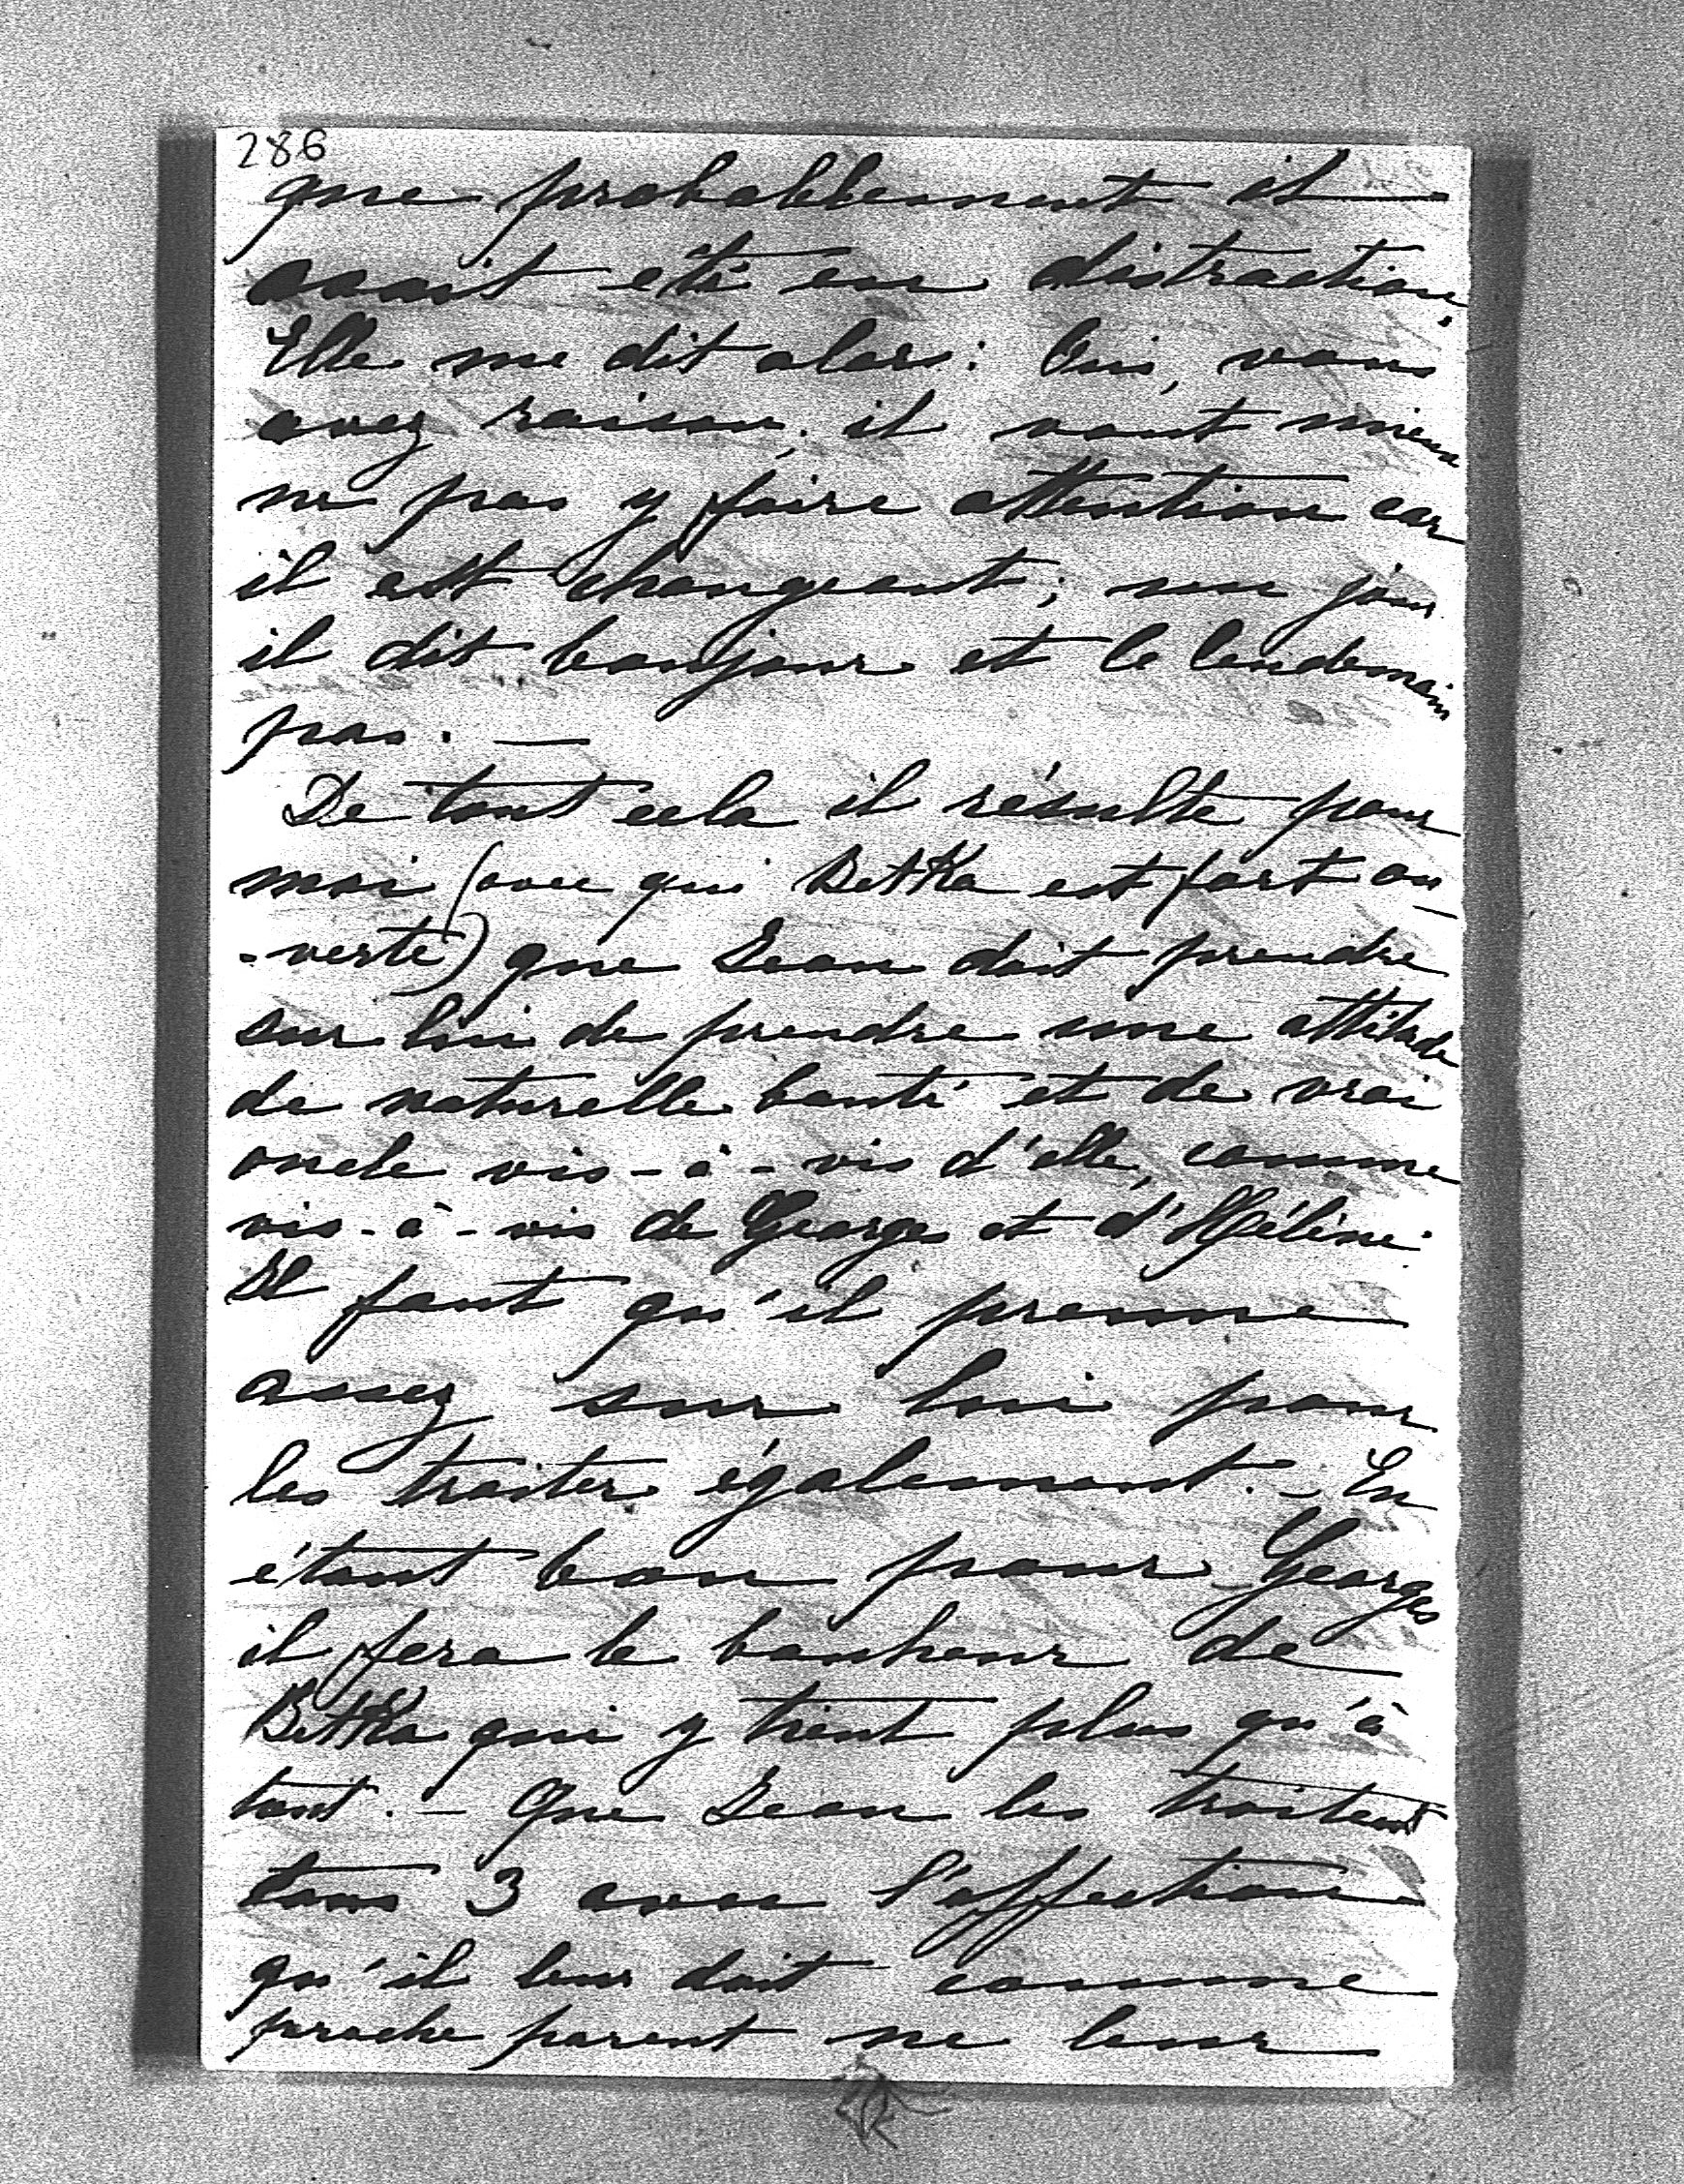 286
que probablement il
avait été en distraction.
Elle me dit alors: Oui, vous
avez raison, il vaut mieux
ne pas y faire attention car
il est changeant; un jour
il dit bonjour et le lendemain
pas. —
De tout cela il résulte pour
moi (avec qui Betka est fort ou-
-verte) que Jean doit prendre
sur lui de prendre une attitude
de naturelle bonté et de vrai
oncle vis-à-vis d'elle, comme
vis-à-vis de Georges et d'Hélène.
Il faut qu'il prenne
assez sur lui pour
les traiter également. — En
étant bon pour Georges
il fera le bonheur de
Betka qui y tient plus qu'à
tout. — Que Jean les traitent
tous 3 avec l'affection
qu'il leur doit comme
proche parent ne leur